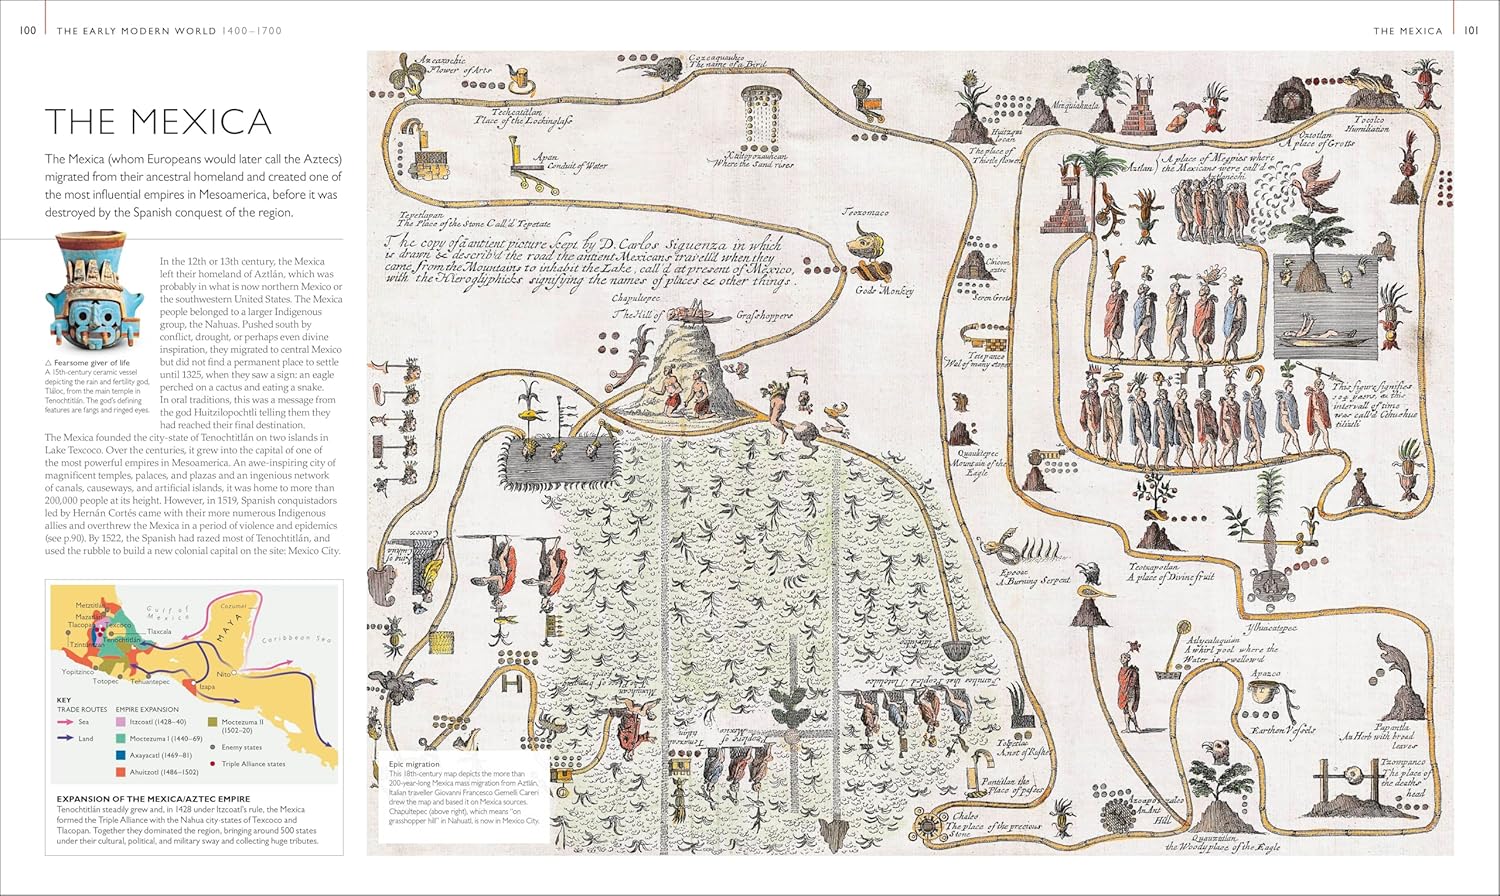 100
THE EARLY MODERN WORLD 1400–1700
THE MEXICA
101
THE MEXICA
The Mexica (whom Europeans would later call the Aztecs)
migrated from their ancestral homeland and created one of
the most influential empires in Mesoamerica, before it was
destroyed by the Spanish conquest of the region.
In the 12th or 13th century, the Mexica
left their homeland of Aztlán, which was
probably in what is now northern Mexico or
the southwestern United States. The Mexica
people belonged to a larger Indigenous
group, the Nahuas. Pushed south by
conflict, drought, or perhaps even divine
inspiration, they migrated to central Mexico
but did not find a permanent place to settle
until 1325, when they saw a sign: an eagle
perched on a cactus and eating a snake.
In oral traditions, this was a message from
the god Huitzilopochtli telling them they
had reached their final destination.
The Mexica founded the city-state of Tenochtitlán on two islands in
Lake Texcoco. Over the centuries, it grew into the capital of one of
the most powerful empires in Mesoamerica. An awe-inspiring city of
magnificent temples, palaces, and plazas and an ingenious network
of canals, causeways, and artificial islands, it was home to more than
200,000 people at its height. However, in 1519, Spanish conquistadors
led by Hernán Cortés came with their more numerous Indigenous
allies and overthrew the Mexica in a period of violence and epidemics
(see p.90). By 1522, the Spanish had razed most of Tenochtitlán, and
used the rubble to build a new colonial capital on the site: Mexico City.
△ Fearsome giver of life
A 15th-century ceramic vessel
depicting the rain and fertility god,
Tláloc, from the main temple in
Tenochtitlán. The god's defining
features are fangs and ringed eyes.
Metztitlán
Gulf of
Mexico
Cozumel
Tlacopan
Texcoco
Tlaxcala
MAYA
Caribbean Sea
Tenochtitlán
Tzintzuntzan
Yopitzinco
Totopec
Tehuantepec
Nito
Izapa
KEY
TRADE ROUTES
Sea
Land
EMPIRE EXPANSION
Itzcoatl (1428–40)
Moctezuma I (1440–69)
Axayacatl (1469–81)
Ahuitzotl (1486–1502)
Moctezuma II
(1502–20)
Enemy states
Triple Alliance states
EXPANSION OF THE MEXICA/AZTEC EMPIRE
Tenochtitlán steadily grew and, in 1428 under Itzcoatl's rule, the Mexica
formed the Triple Alliance with the Nahua city-states of Texcoco and
Tlacopan. Together they dominated the region, bringing around 500 states
under their cultural, political, and military sway and collecting huge tributes.
Azcaxochic
Flower of Arts
Cozcaquauhco
The name of a Bird
Techcatitlan
Place of the Lockinglass
Apan
Conduit of Water
Where the Sand rises
Tepetlapan
The Place of the Stone Call'd Tepetate
The copy of a antient picture kept by D. Carlos Siguenza in which
is drawn & describ'd the road the antient Mexicans travell'd when they
came from the Mountains to inhabit the Lake, call'd at present of Mexico,
with the Hieroglyphicks signifying the names of places & other things.
Teozomaco
Gods Monkey
Chapultepec
The Hill of Grashoppers
The place of
Thistle flower
Mezquiahuala
Oztotlan
A place of Grotts
Tocolco
Humiliation
Aztlan
A place of Megpies where
the Mexicans were call'd
Aztlanechi
Seven Grots
Tetepanco
Wal of many stones
Quauhtepec
Mountain of the
Eagle
This figure signifies
104 years, as this
intervall of time
was call'd
Epcoac
A Burning Serpent
Teotzapotlan
A place of Divine fruit
Ylhuicatepec
Atlycalaquian
A whirl pool where the
Water is swallow'd
Apazco
Earthen Vessels
Papantla
An Herb with broad
leaves
Tzompanco
The place of
the deaths
head
Pantitlan the
Place of passes
Chalco
The place of the precious
Stone
An Ant
Hill
Quauhtitlan
the Woody place of the Eagle
Epic migration
This 18th-century map depicts the more than
200-year-long Mexica mass migration from Aztlán.
Italian traveller Giovanni Francesco Gemelli Careri
drew the map and based it on Mexica sources.
Chapultepec (above right), which means "on
grasshopper hill" in Nahuatl, is now in Mexico City.